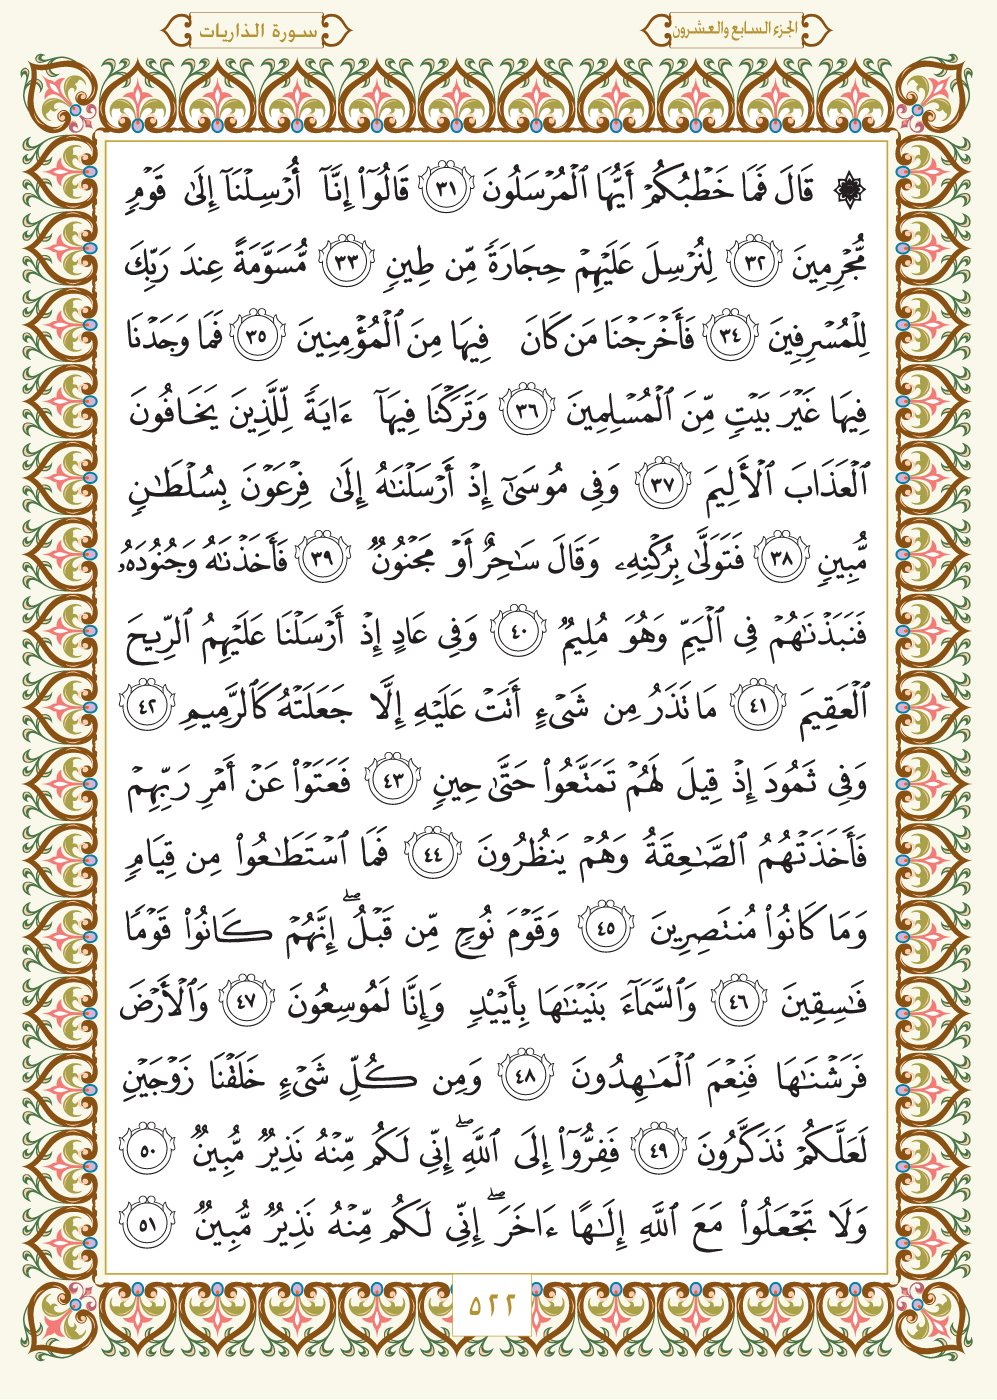 الجزء السابع والعشرون
سورة الذاريات
۞ قَالَ فَمَا خَطۡبُكُمۡ أَيُّهَا ٱلۡمُرۡسَلُونَ ٣١ قَالُوٓاْ إِنَّآ أُرۡسِلۡنَآ إِلَىٰ قَوۡمٖ
مُّجۡرِمِينَ ٣٢ لِنُرۡسِلَ عَلَيۡهِمۡ حِجَارَةٗ مِّن طِينٖ ٣٣ مُّسَوَّمَةً عِندَ رَبِّكَ
لِلۡمُسۡرِفِينَ ٣٤ فَأَخۡرَجۡنَا مَن كَانَ فِيهَا مِنَ ٱلۡمُؤۡمِنِينَ ٣٥ فَمَا وَجَدۡنَا
فِيهَا غَيۡرَ بَيۡتٖ مِّنَ ٱلۡمُسۡلِمِينَ ٣٦ وَتَرَكۡنَا فِيهَآ ءَايَةٗ لِّلَّذِينَ يَخَافُونَ
ٱلۡعَذَابَ ٱلۡأَلِيمَ ٣٧ وَفِي مُوسَىٰٓ إِذۡ أَرۡسَلۡنَٰهُ إِلَىٰ فِرۡعَوۡنَ بِسُلۡطَٰنٖ
مُّبِينٖ ٣٨ فَتَوَلَّىٰ بِرُكۡنِهِۦ وَقَالَ سَٰحِرٌ أَوۡ مَجۡنُونٞ ٣٩ فَأَخَذۡنَٰهُ وَجُنُودَهُۥ
فَنَبَذۡنَٰهُمۡ فِي ٱلۡيَمِّ وَهُوَ مُلِيمٞ ٤٠ وَفِي عَادٍ إِذۡ أَرۡسَلۡنَا عَلَيۡهِمُ ٱلرِّيحَ
ٱلۡعَقِيمَ ٤١ مَا تَذَرُ مِن شَيۡءٍ أَتَتۡ عَلَيۡهِ إِلَّا جَعَلَتۡهُ كَٱلرَّمِيمِ ٤٢
وَفِي ثَمُودَ إِذۡ قِيلَ لَهُمۡ تَمَتَّعُواْ حَتَّىٰ حِينٖ ٤٣ فَعَتَوۡاْ عَنۡ أَمۡرِ رَبِّهِمۡ
فَأَخَذَتۡهُمُ ٱلصَّٰعِقَةُ وَهُمۡ يَنظُرُونَ ٤٤ فَمَا ٱسۡتَطَٰعُواْ مِن قِيَامٖ
وَمَا كَانُواْ مُنتَصِرِينَ ٤٥ وَقَوۡمَ نُوحٖ مِّن قَبۡلُۖ إِنَّهُمۡ كَانُواْ قَوۡمٗا
فَٰسِقِينَ ٤٦ وَٱلسَّمَآءَ بَنَيۡنَٰهَا بِأَيۡيْدٖ وَإِنَّا لَمُوسِعُونَ ٤٧ وَٱلۡأَرۡضَ
فَرَشۡنَٰهَا فَنِعۡمَ ٱلۡمَٰهِدُونَ ٤٨ وَمِن كُلِّ شَيۡءٍ خَلَقۡنَا زَوۡجَيۡنِ
لَعَلَّكُمۡ تَذَكَّرُونَ ٤٩ فَفِرُّوٓاْ إِلَى ٱللَّهِۖ إِنِّي لَكُم مِّنۡهُ نَذِيرٞ مُّبِينٞ ٥٠
وَلَا تَجۡعَلُواْ مَعَ ٱللَّهِ إِلَٰهًا ءَاخَرَۖ إِنِّي لَكُم مِّنۡهُ نَذِيرٞ مُّبِينٞ ٥١
٥٢٢